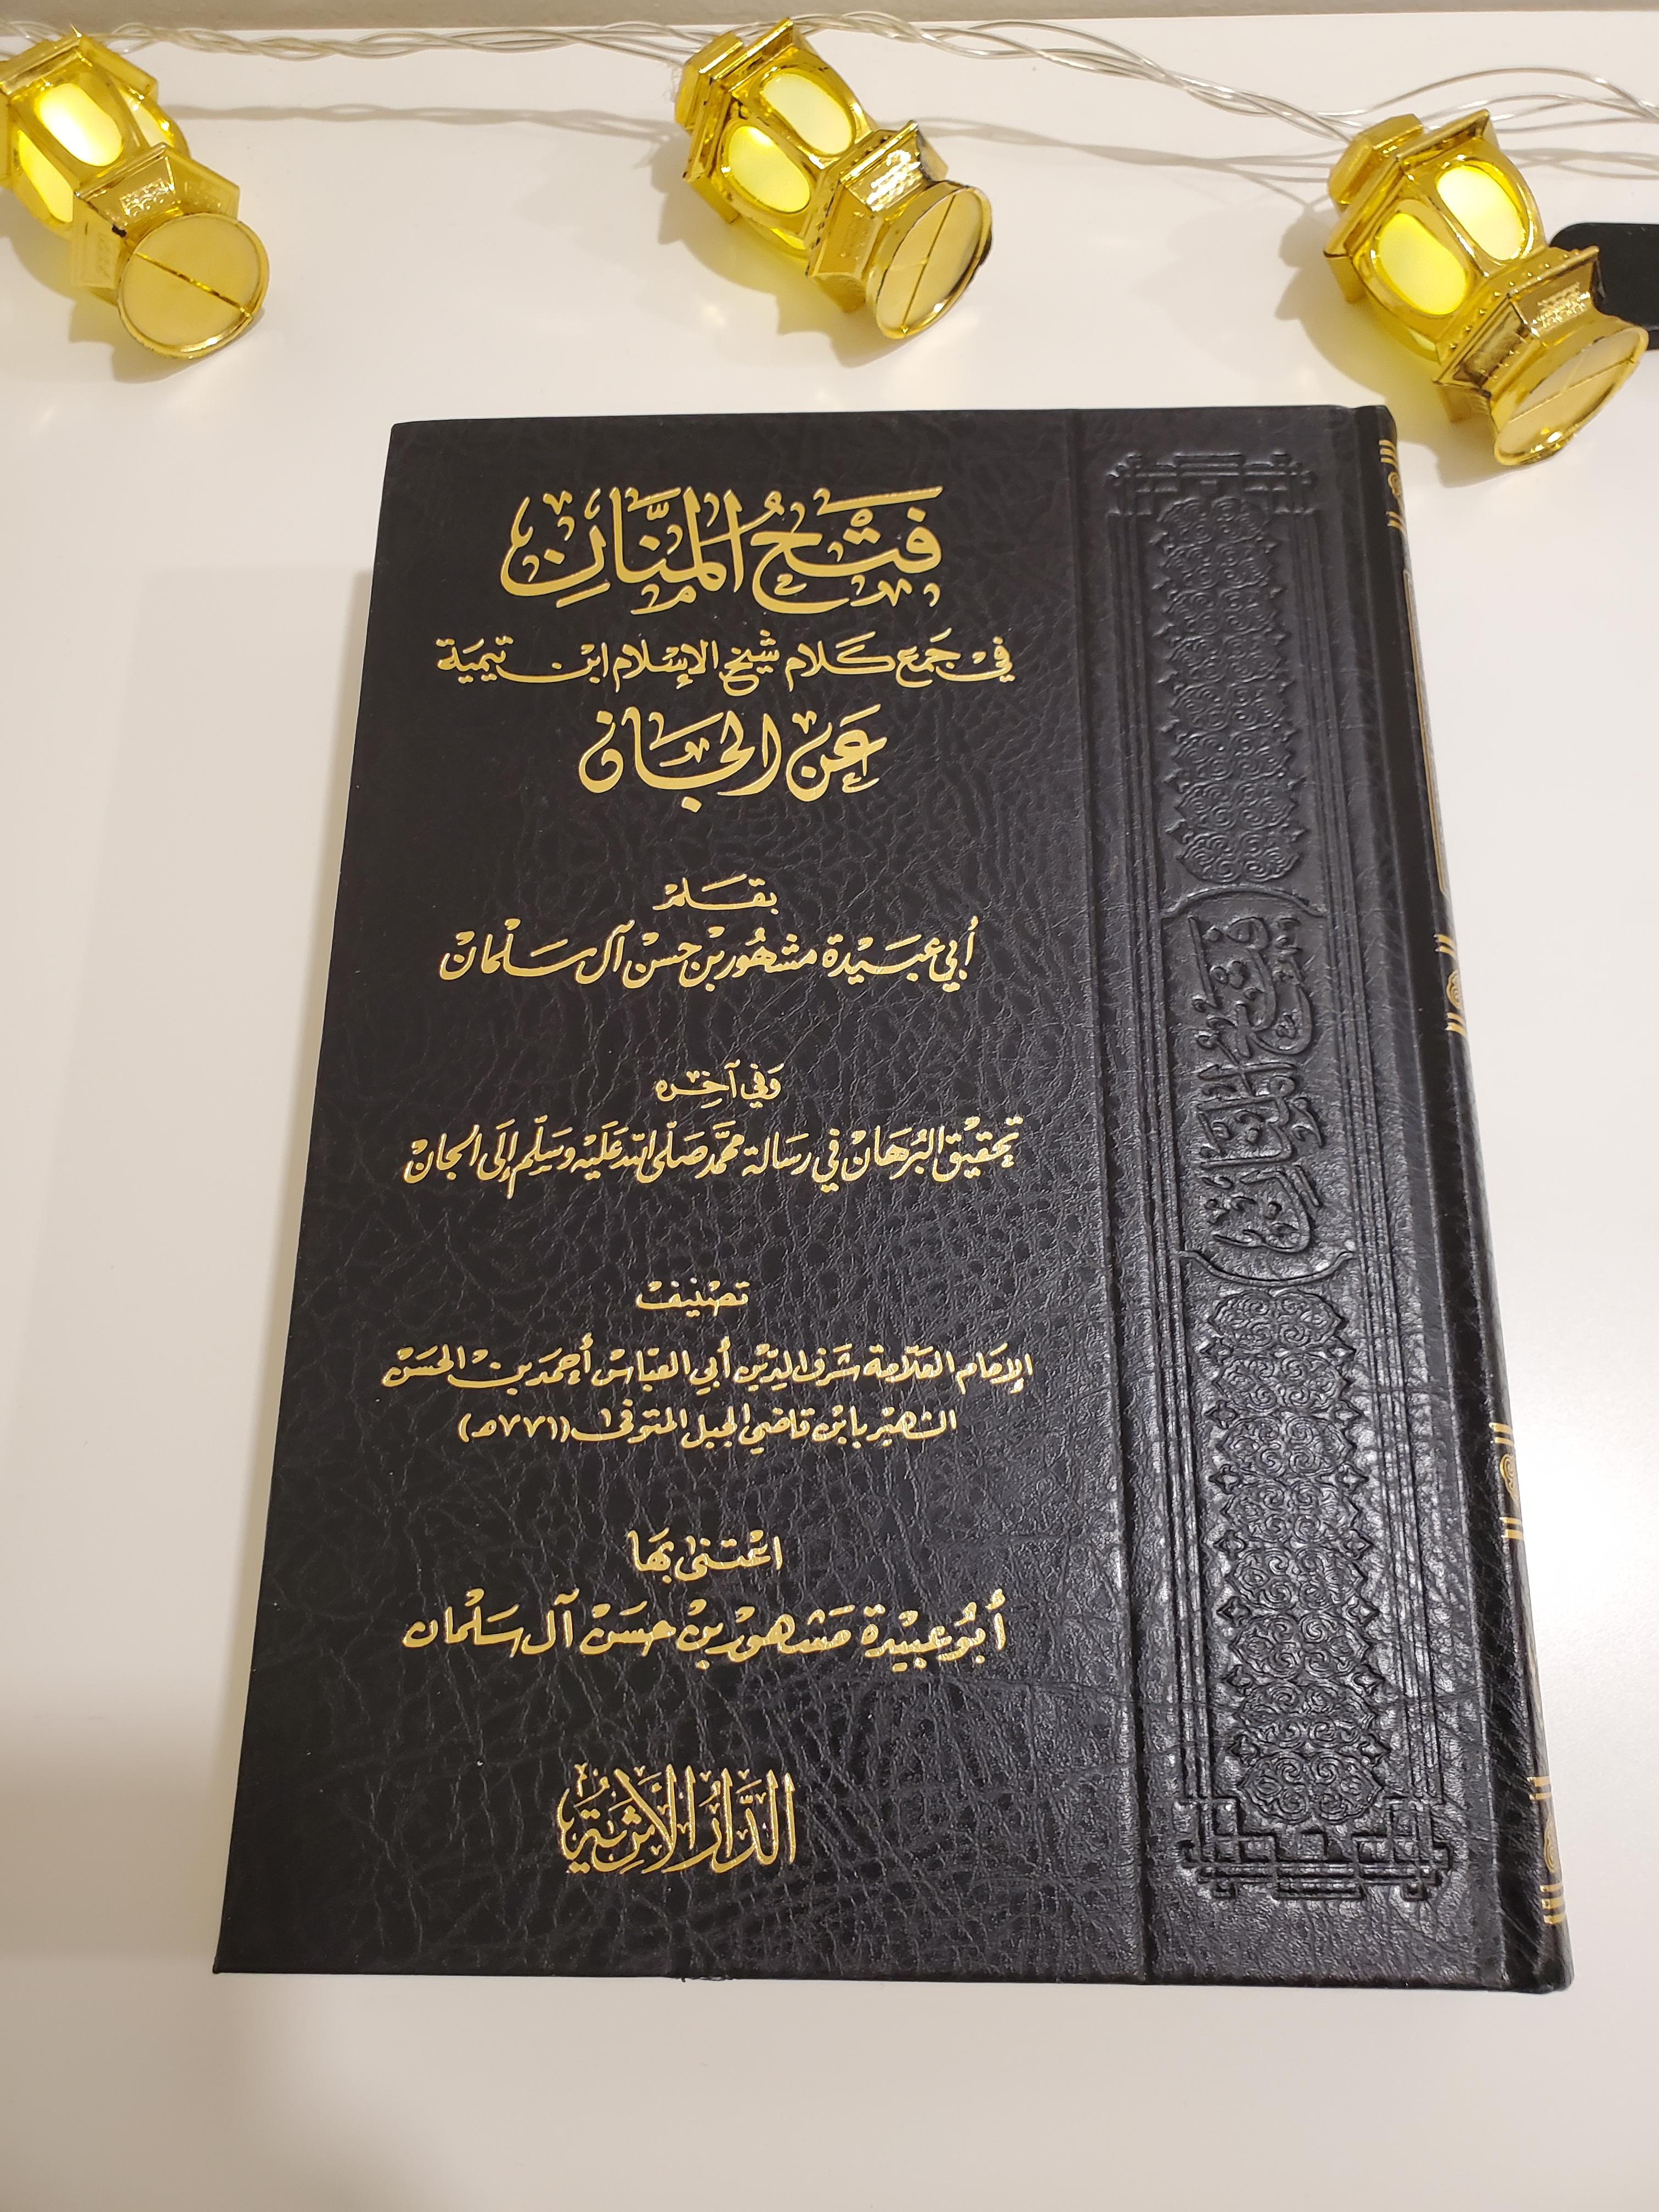 فَتْحُ المَنَّانِ
في جَمع كلام شيخ الإسلام ابن تيميَة
عَن الجَان
بقلم
أبي عبيدة مشهور بن حسن آل سلمان
وَفي آخِره
تحقيق البُرهَان في رسَالة محمَّد صَلّى اللّه عَلَيْه وَسَلّم إلَى الجان
تصنيف
الإمام العلّامة شرف الدِّين أبي العبّاس أحمد بن الحسَن
الشهير بابن قاضي الجبل المتوفى (٧٧١هـ)
اعتنى بهَا
أبُو عبيدة مَشهور بن حسَن آل سَلمان
الدَّارُ الأَثَرِيَّةُ
فَتْحُ المَنَّانِ